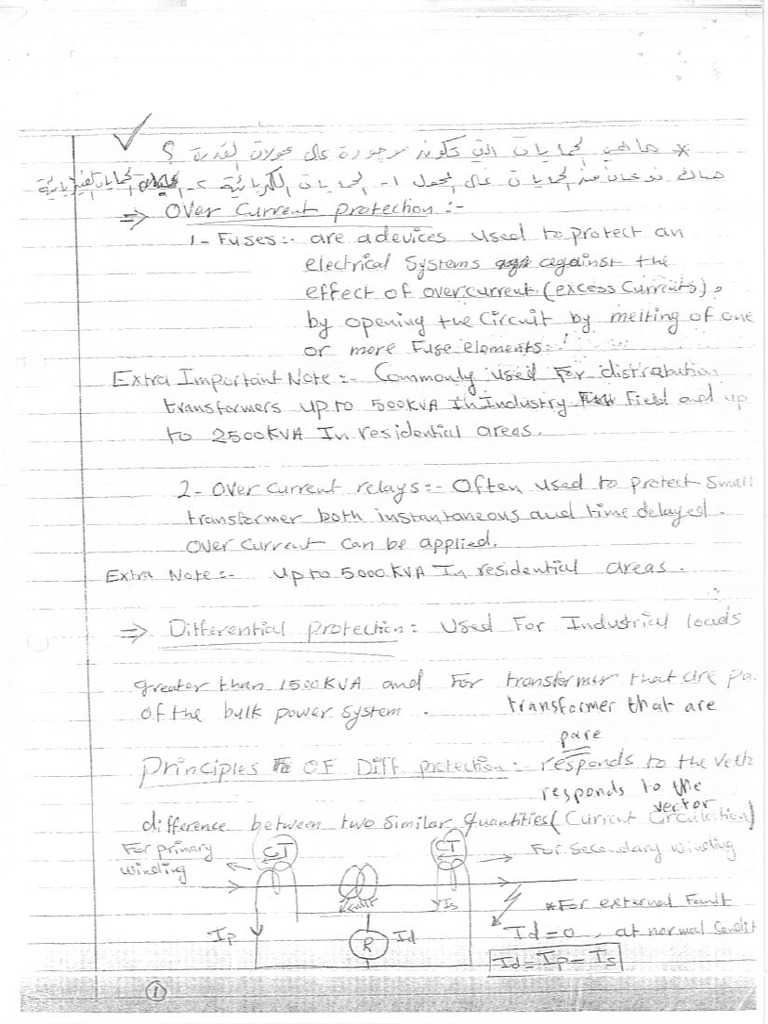 * ماهي الحمايات التي تكون موجودة على محولات القدرة ؟
هناك نوعان من الحمايات على المحول 1- الحمايات الكهربائية 2- الحمايات الفيزيائية
⇒ Over Current protection :-
1- Fuses :- are a devices used to protect an
electrical Systems against the
effect of overcurrent (excess Currents),
by opening the Circuit by melting of one
or more Fuse elements.
Extra Important Note :- Commonly used For distrabution
transformers up to 500KVA In Industry Field and up
to 2500KVA In residential areas.
2- Over current relays :- Often used to protect Small
transformer both instantaneous and time delayed.
Over Current can be applied.
Extra Note :- up to 5000.KVA In residential areas.
⇒ Differential protection : Used For Industrial loads
greater than 1500KVA and For transformer that are pa.
of the bulk power system. transformer that are
pare
Principles OF Diff protection : responds to the vect
responds to the
vector
difference between two Similar quantities (Current Circulation)
For primary winding
CT
CT
For Secondary winding
Is
* For external Fault
Ip
R
Id
Id = 0, at normal Condit
Id = Ip - Is
1